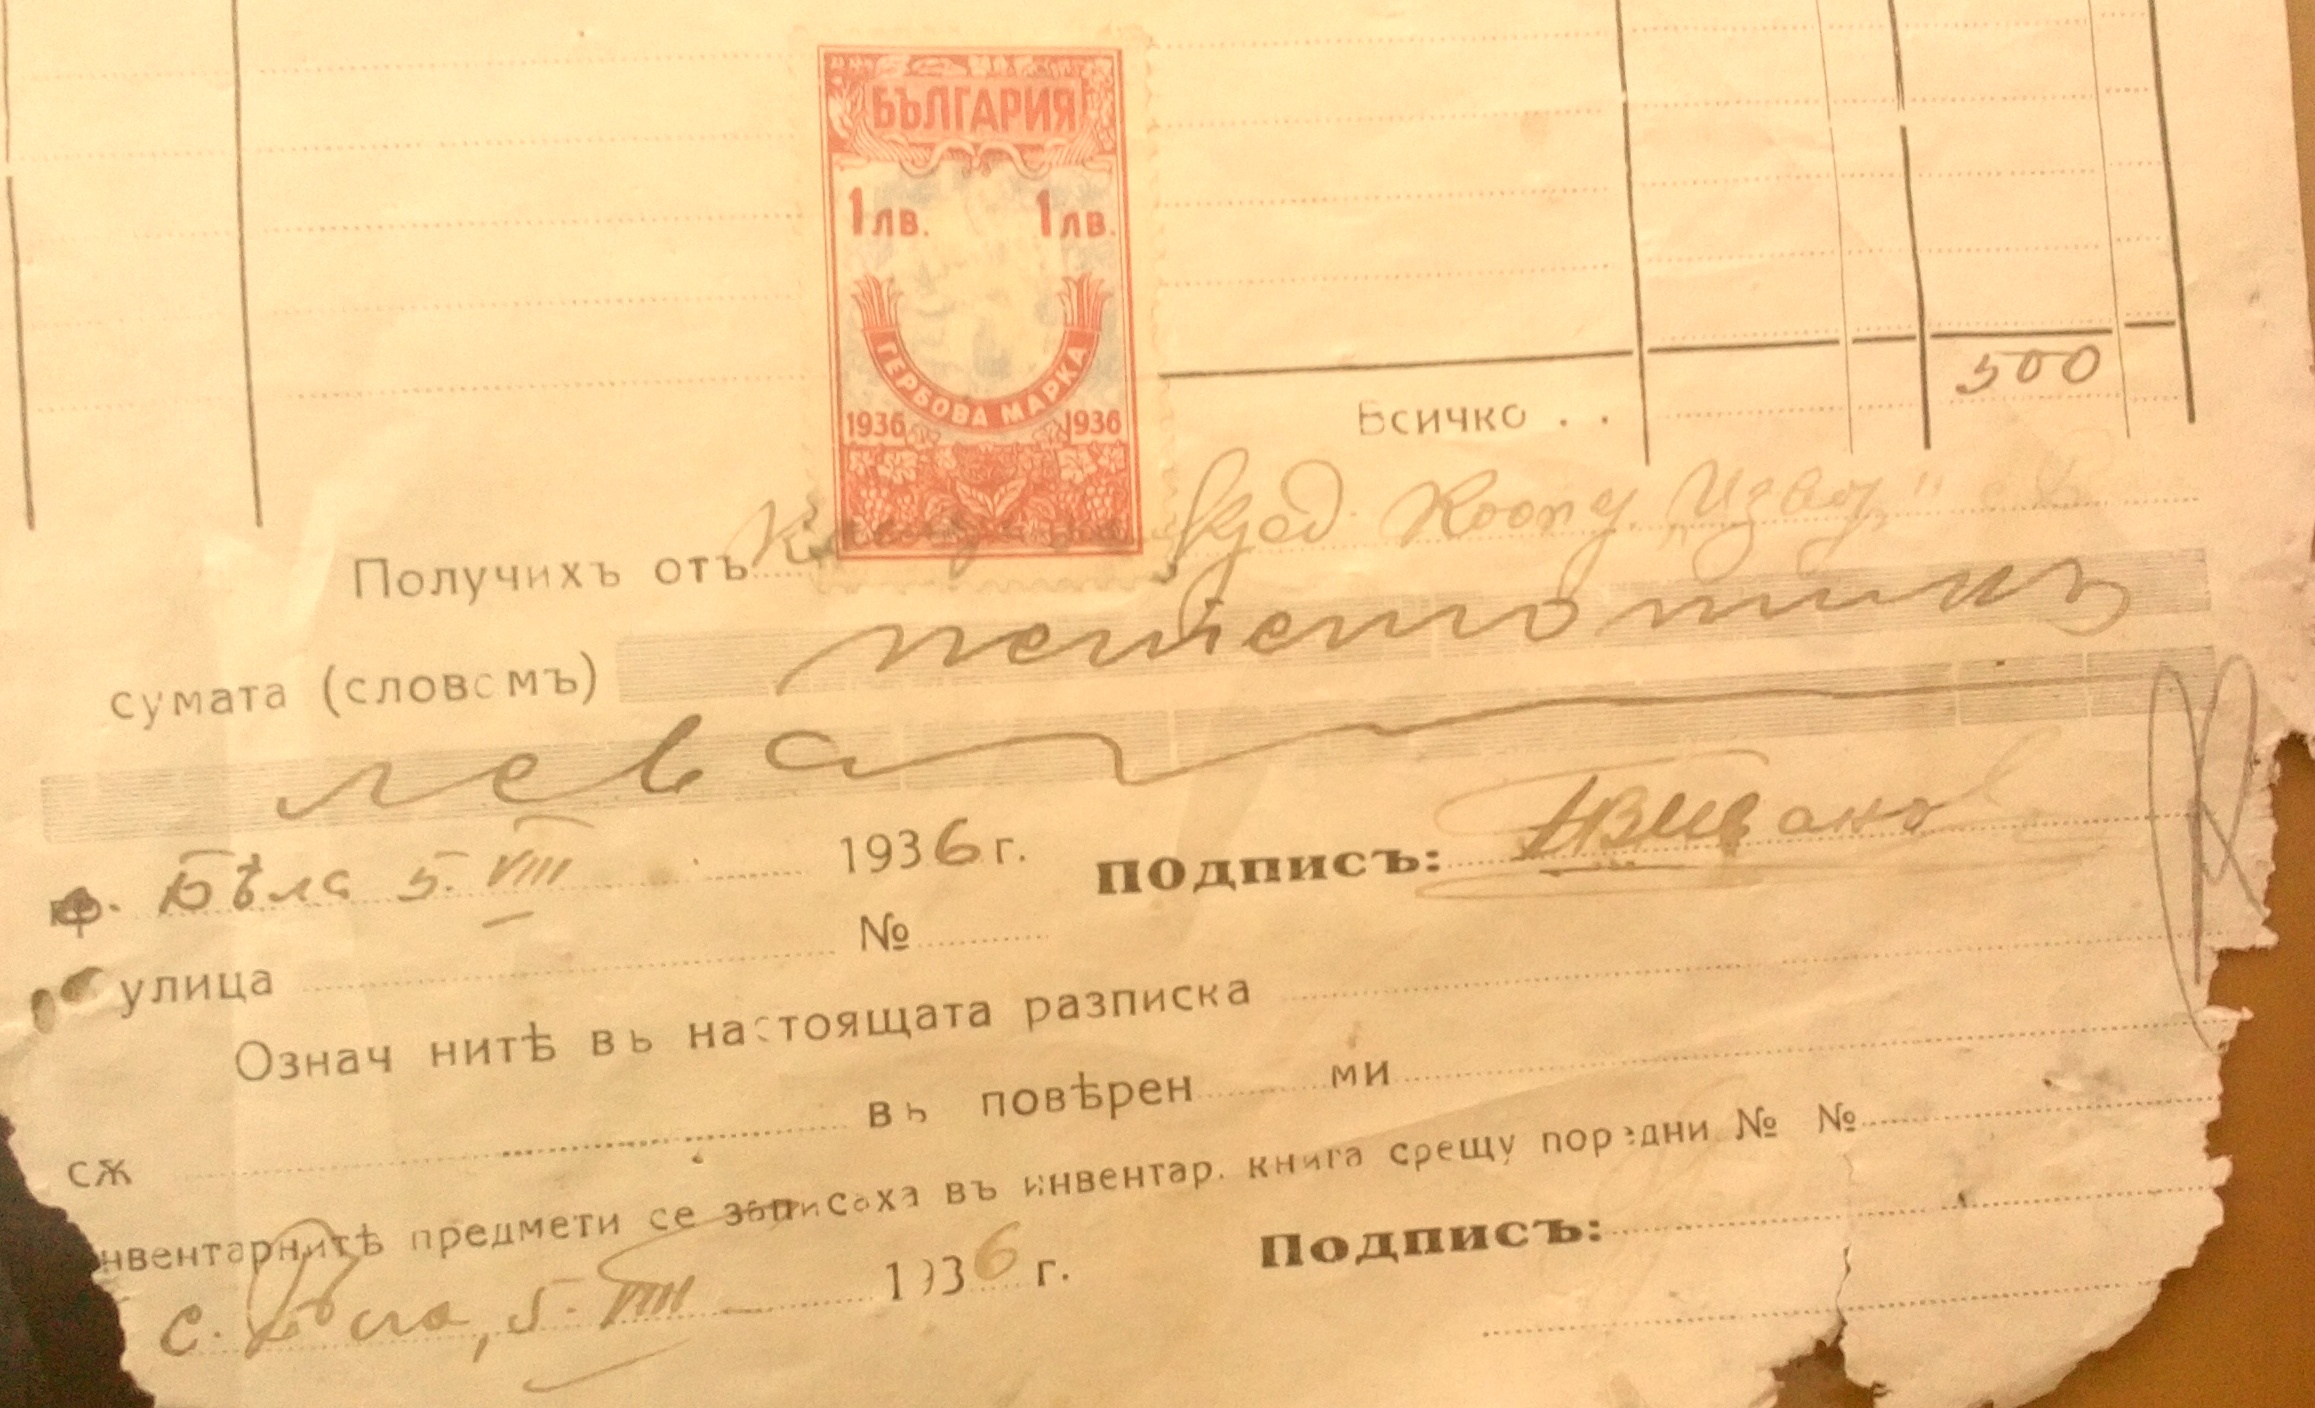 БЪЛГАРИЯ
1 лв. 1 лв.
ГЕРБОВА МАРКА
1936 1936
500
Всичко . .
Получихъ отъ кред. Кооп. „Изворъ"
сумата (словомъ) петстотинъ
лева
гр. Бѣла 5. VIII 1936 г. Подписъ:
улица №
Означ нитѣ въ настоящата разписка
сѫ въ повѣрен ми
нвентарнитѣ предмети се записаха въ инвентар. книга срещу поредни № №
с. Бѣла, 5. VIII 1936 г. Подписъ: